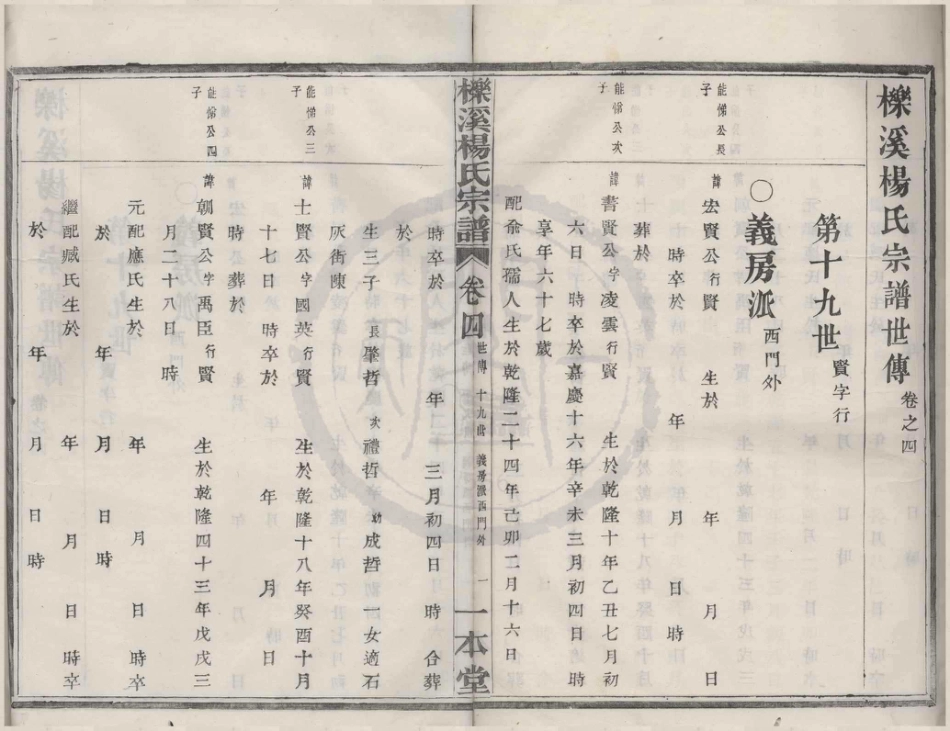 櫟溪楊氏宗譜世傳 卷之四
第十九世 賢字行
○義房派 西門外
能悌公長子
諱宏賢公行賢 生於 年 月 日
時卒於 年 月 日 時
葬於
能悌公次子
諱書賢公字凌雲行賢 生於乾隆十年乙丑七月初
六日 時卒於嘉慶十六年辛未三月初四日 時
享年六十七歲
配俞氏孺人生於乾隆二十四年己卯二月十六日
櫟溪楊氏宗譜 卷四 世傳 十九世 義房派西門外 一 一本堂
時卒於 年 三月初四日 時 合葬
於
生三子 長肇哲 次禮哲 幼成哲 一女適石
灰街陳
能悌公三子
諱士賢公字國英行賢 生於乾隆十八年癸酉十月
十七日 時卒於 年 月 日
時 葬於
能悌公四子
諱朝賢公字禹臣行賢 生於乾隆四十三年戊戌三
月二十八日 時
元配應氏生於 年 月 日 時卒
於 年 月 日 時
繼配臧氏生於 年 月 日 時卒
於 年 月 日 時